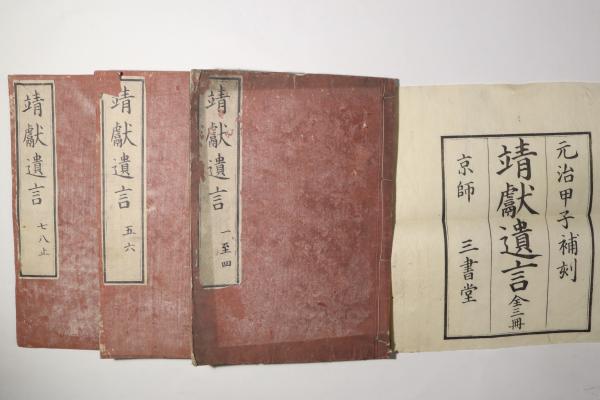 元治甲子補刻
靖獻遺言 全三冊
京師 三書堂
靖獻遺言 一至四
靖獻遺言 五六
靖獻遺言 七八止